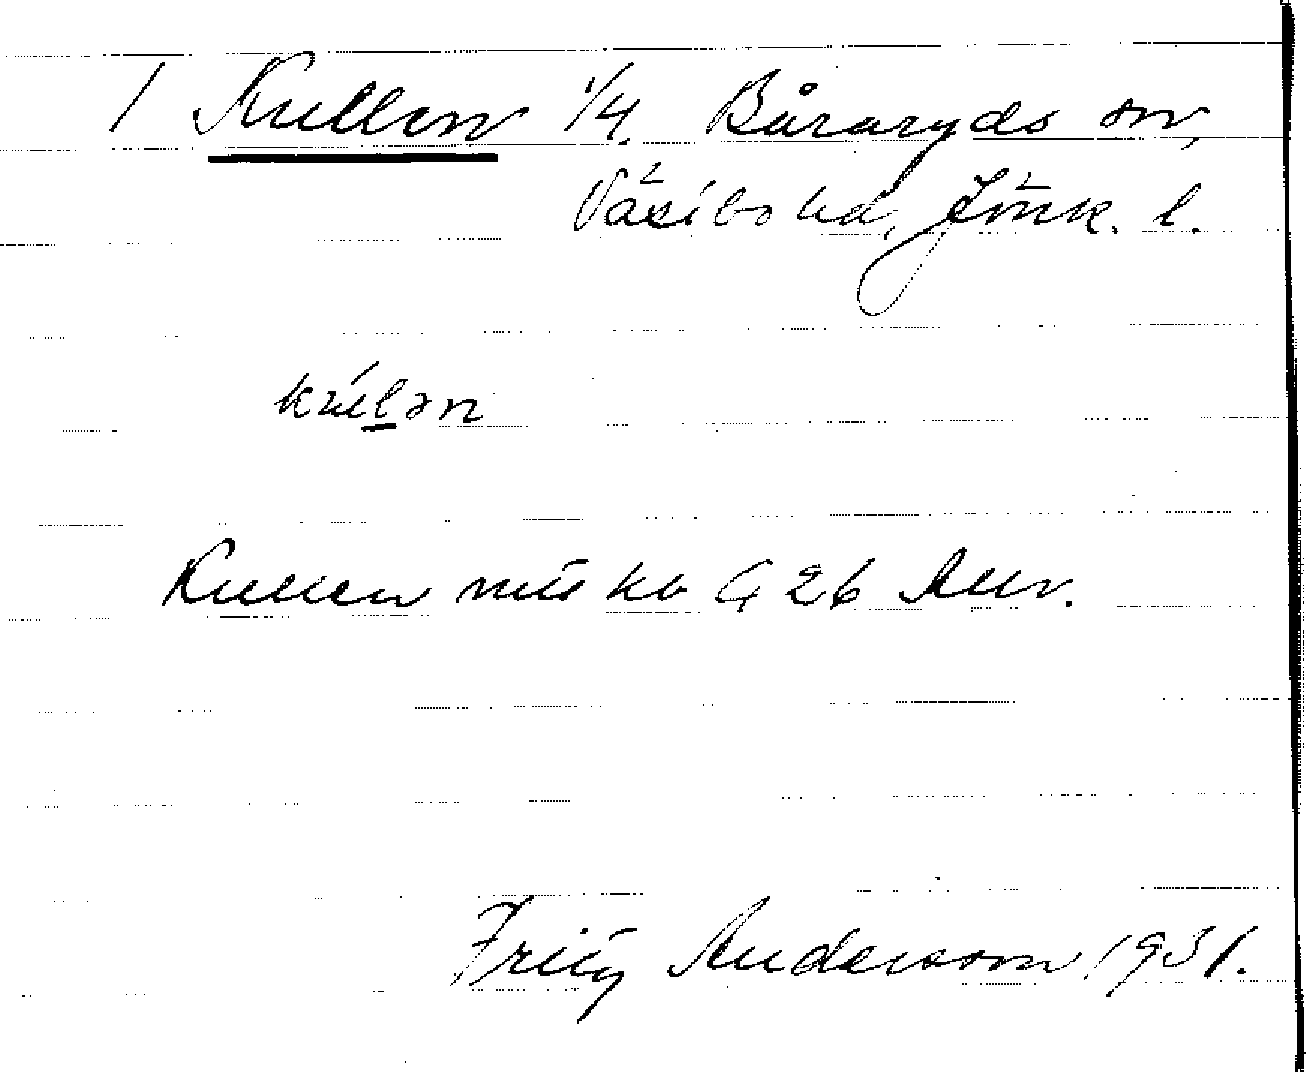 1 Kullen 1/4. Båraryds sn,
Västbo hd, Jönk. l.
kúlən
Kullen G 26 Au.
Fritz Andersson 1931.